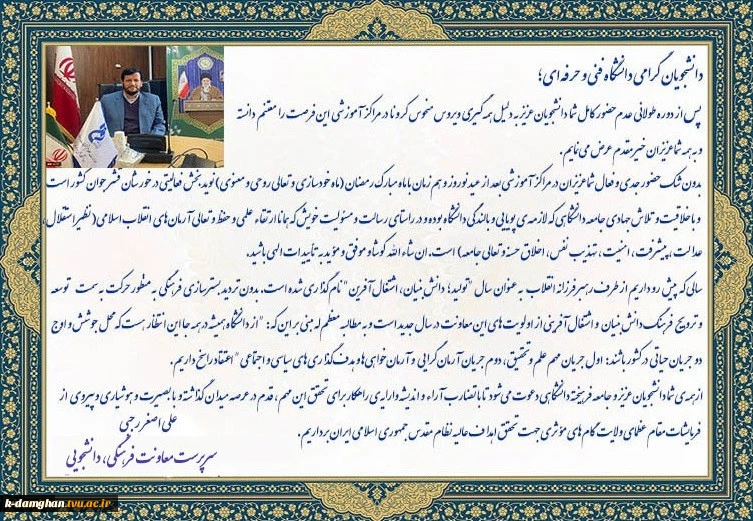 دانشجویان گرامی دانشگاه فنی و حرفه ای؛
پس از دوره طولانی عدم حضور کامل شما دانشجویان عزیز به دلیل همه گیری ویروس منحوس کرونا در مراکز آموزشی این فرصت را مغتنم دانسته
و به همه شما عزیزان خیر مقدم عرض می نمایم.
بدون شک حضور جدی و فعال شما عزیزان در مراکز آموزشی بعد از عید نوروز و هم زمان با ماه مبارک رمضان (ماه خودسازی و تعالی روحی و معنوی) نوید بخش فعالیتی در خور شان قشر جوان کشور است
و با خلاقیت و تلاش جهادی جامعه دانشگاهی که لازمه ی پویایی و بالندگی دانشگاه بوده و در راستای رسالت و مسئولیت خویش که همانا ارتقاء علمی و حفظ و تعالی آرمان های انقلاب اسلامی (نظیر استقلال،
عدالت، پیشرفت، امنیت، تهذیب نفس، اخلاق حسنه و تعالی جامعه) است. ان شاء الله کوشا و موفق و مؤید به تأییدات الهی باشید.
سالی که پیش رو داریم از طرف رهبر فرزانه انقلاب به عنوان سال "تولید؛ دانش بنیان، اشتغال آفرین" نام گذاری شده است. بدون تردید بسترسازی فرهنگی به منظور حرکت به سمت توسعه
و ترویج فرهنگ دانش بنیان و اشتغال آفرینی از اولویت های این معاونت در سال جدید است و به مطالبه معظم له مبنی بر این که: "از دانشگاه همیشه در همه جا این انتظار هست که محل جوشش و اوج
دو جریان حیاتی در کشور باشند: اول جریان مهم علم و تحقیق، دوم جریان آرمان گرایی و آرمان خواهی ها و هدف گذاری های سیاسی و اجتماعی" اعتقاد راسخ داریم.
از همه ی شما دانشجویان عزیز و جامعه فرهیخته دانشگاهی دعوت می شود تا با تضارب آراء و اندیشه و ارایه ی راهکار برای تحقق این مهم، قدم در عرصه میدان گذاشته و با بصیرت و هوشیاری و پیروی از
فرمایشات مقام عظمای ولایت گام های مؤثری جهت تحقق اهداف عالیه نظام مقدس جمهوری اسلامی ایران برداریم.
علی اصغر رجبی
سرپرست معاونت فرهنگی، دانشجویی
k-damghan.tvu.ac.ir